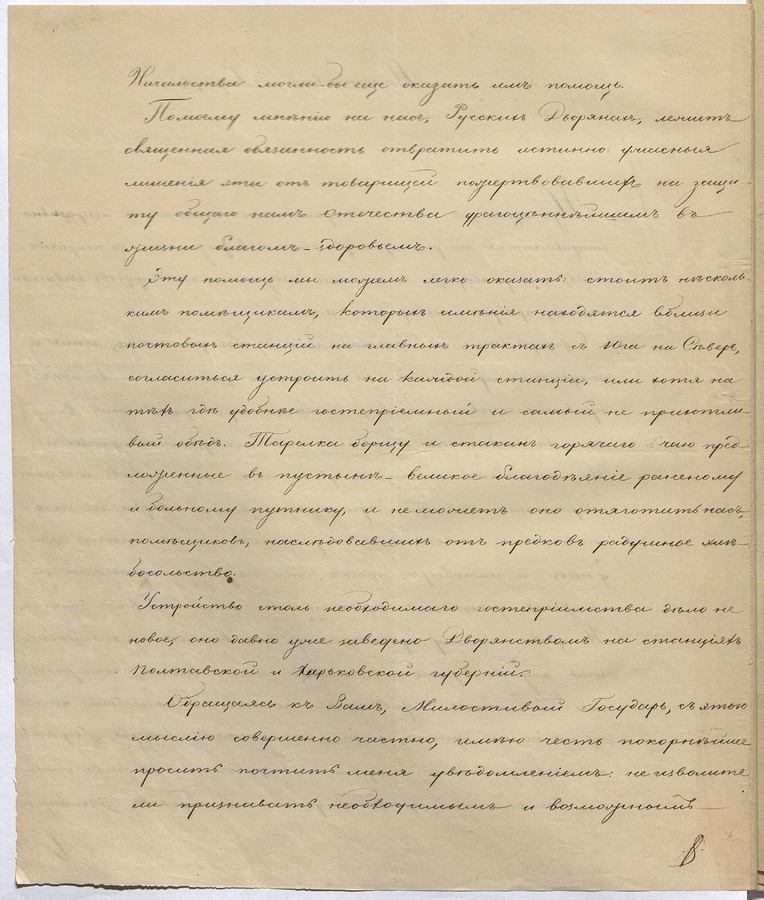 Начальства могли-бы еще оказать имъ помощь.
Помоему мнѣнію на насъ, Русскихъ Дворянахъ, лежитъ
священная обязанность отвратить истинно ужасныя
лишенія эти отъ товарищей пожертвовавшихъ на защи-
ту общаго намъ отечества драгоцѣннѣйшимъ въ
жизни благомъ - здоровьемъ.
Эту помощь мы можемъ легко оказать: стоитъ нѣсколь-
кимъ помѣщикамъ, которыхъ имѣнія находятся вблизи
почтовыхъ станцій на главныхъ трактахъ съ Юга на Сѣверъ,
согласиться устроить на каждой станціи, или хотя на
тѣхъ гдѣ удобнѣе гостепріемный и самый не прихотли-
вый обѣдъ. Тарелка борщу и стаканъ горячаго чаю пред-
ложенные въ пустынѣ - великое благодѣяніе раненому
и больному путнику, и не можетъ оно отяготить насъ,
помѣщиковъ, наслѣдовавшихъ отъ предковъ радушное хлѣ-
босольство.
Устройство столь необходимаго гостепріимства дѣло не
новое, оно давно уже заведено Дворянствомъ на станціяхъ
Полтавской и Харьковской губерній.
Обращаясь къ Вамъ, Милостивый Государь, съ этою
мыслію совершенно частно, имѣю честь покорнѣйше
просить почтить меня увѣдомленіемъ: не изволите
ли признавать необходимымъ и возможнымъ